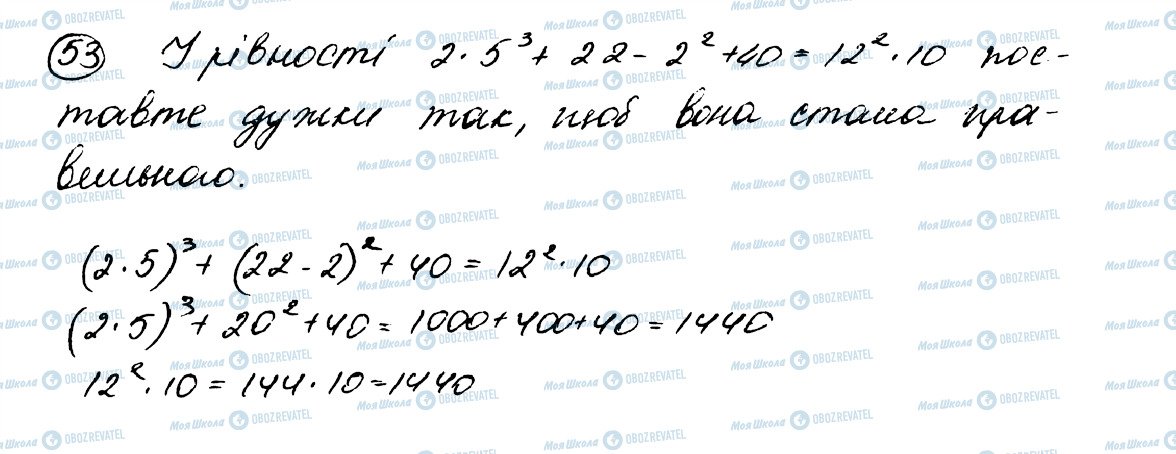 53 У рівності 2·5³+22-2²+40=12²·10 пос-
тавте дужки так, щоб вона стала пра-
вильною.
(2·5)³+(22-2)²+40=12²·10
(2·5)³+20²+40=1000+400+40=1440
12²·10=144·10=1440